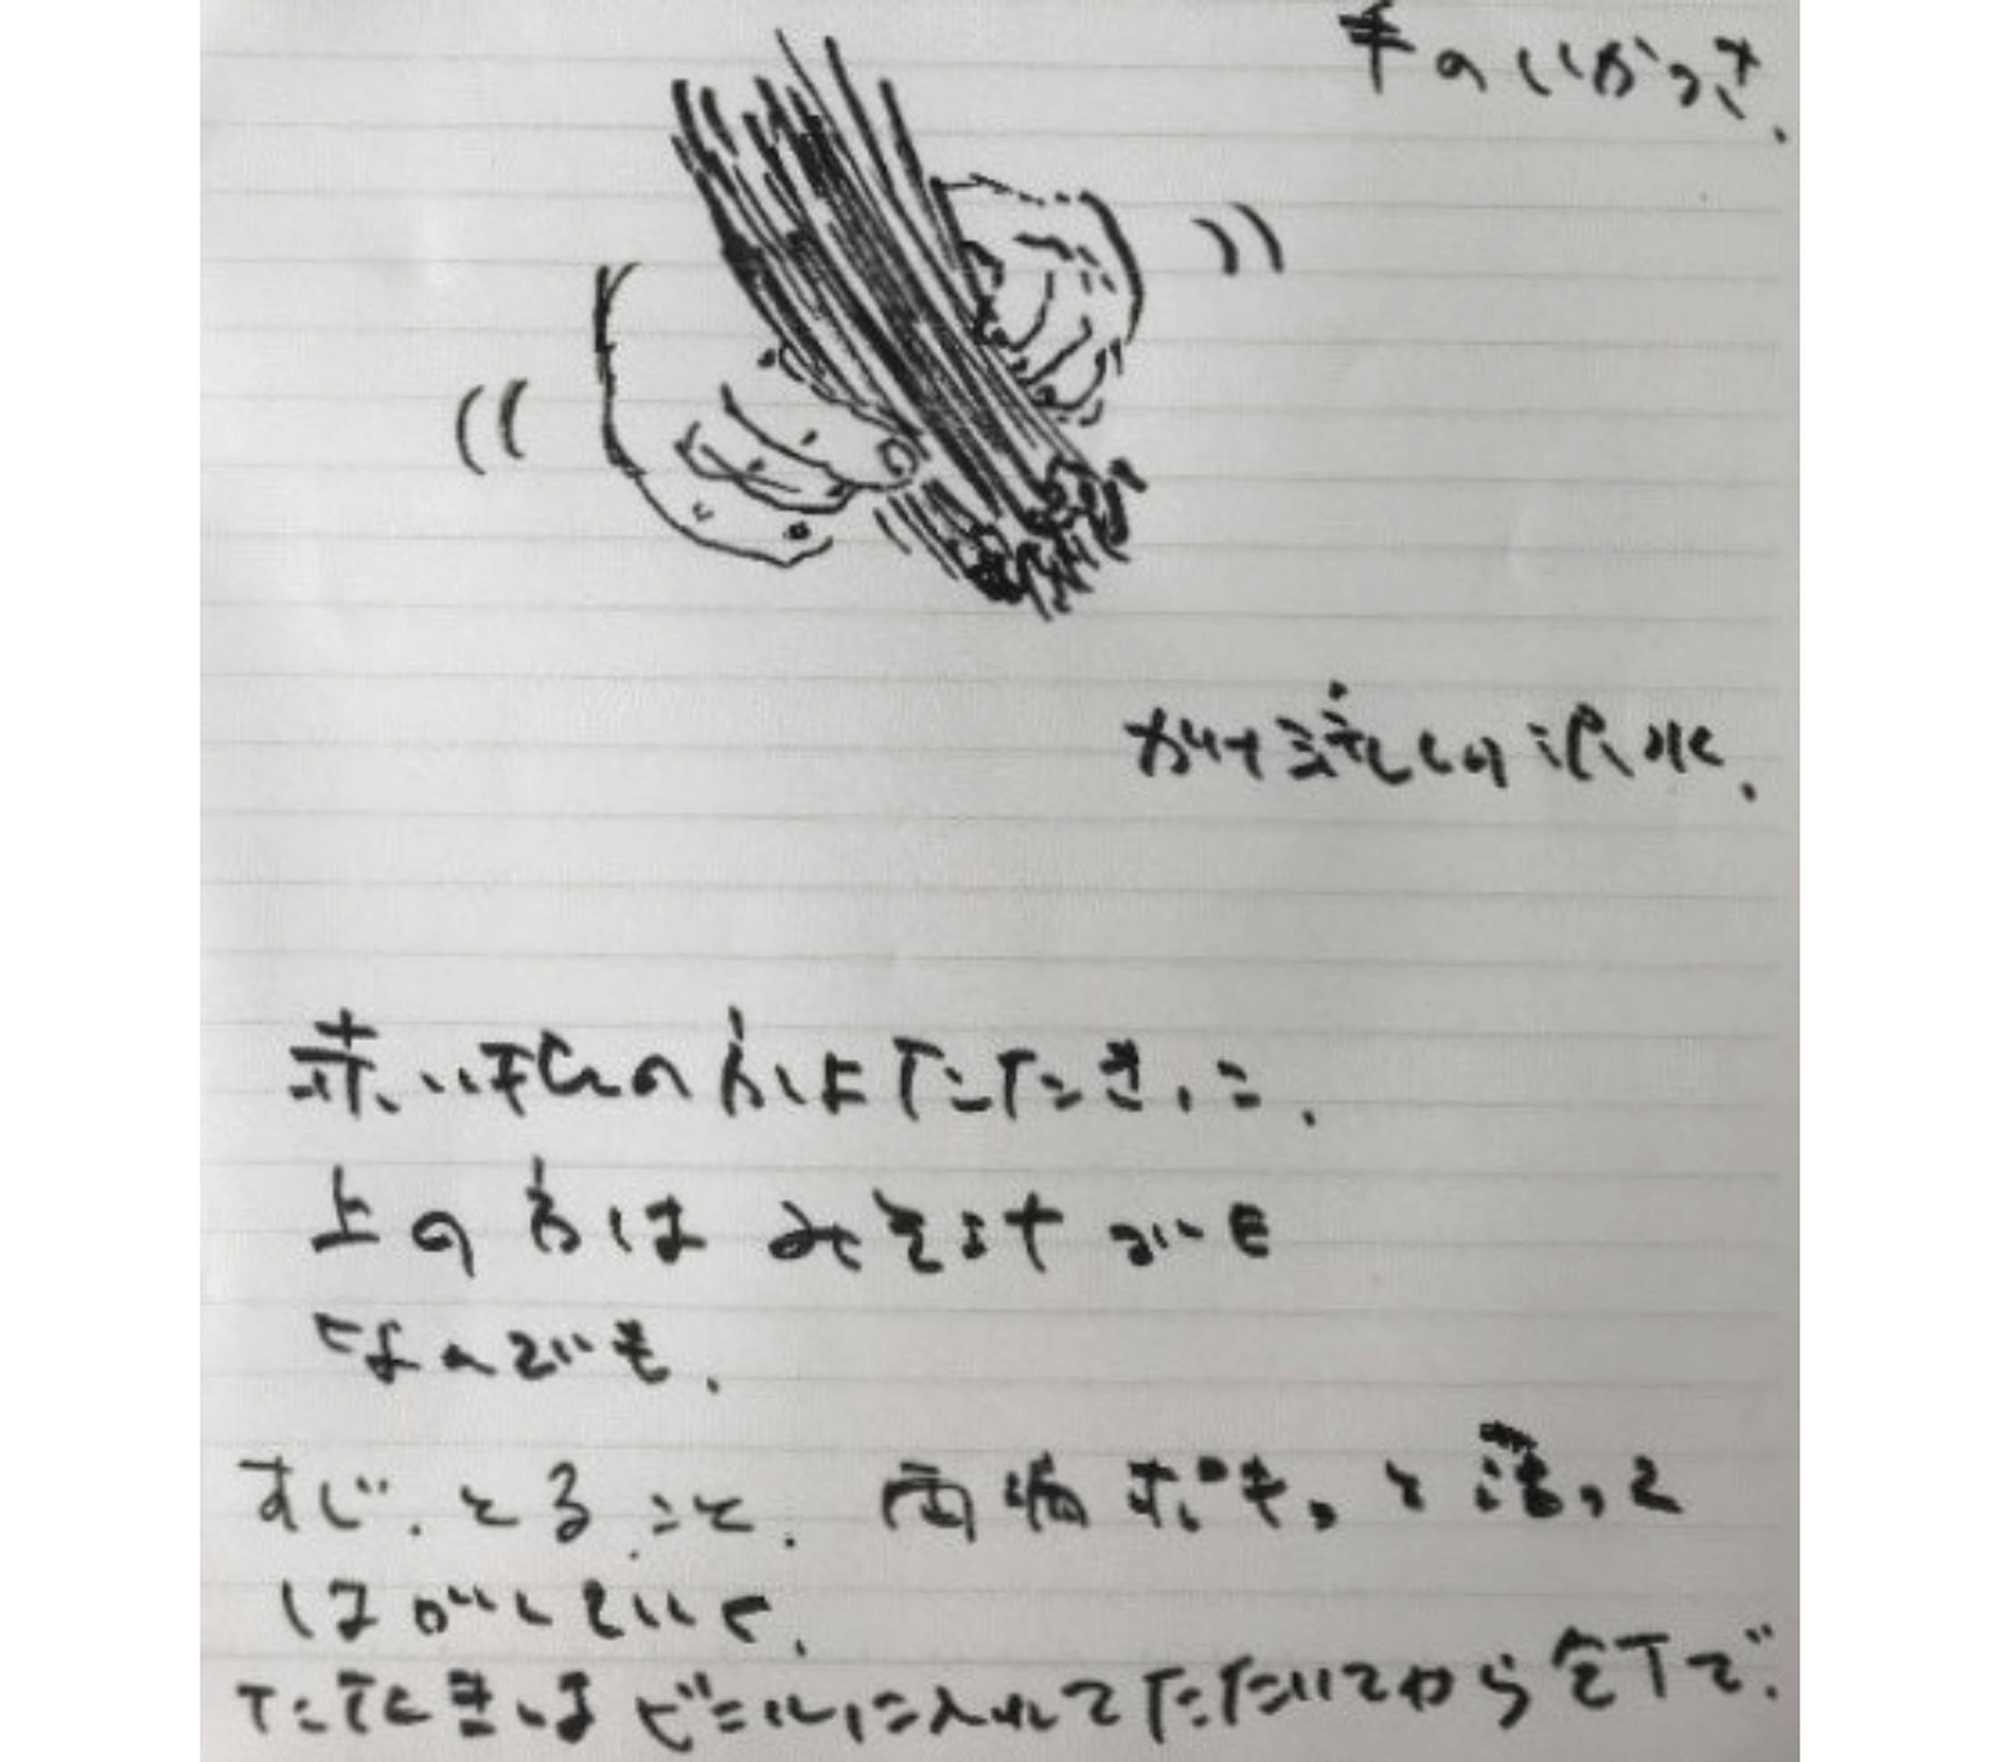 手のいかつさ.
かけ流しの沢水.
赤い根の方はたたきに.
上の方はみそ汁でも
なんでも.
すじ.とること. 両端ポキっと
はがしていく.
たたきはビニルに入れてたたいてから包丁で.